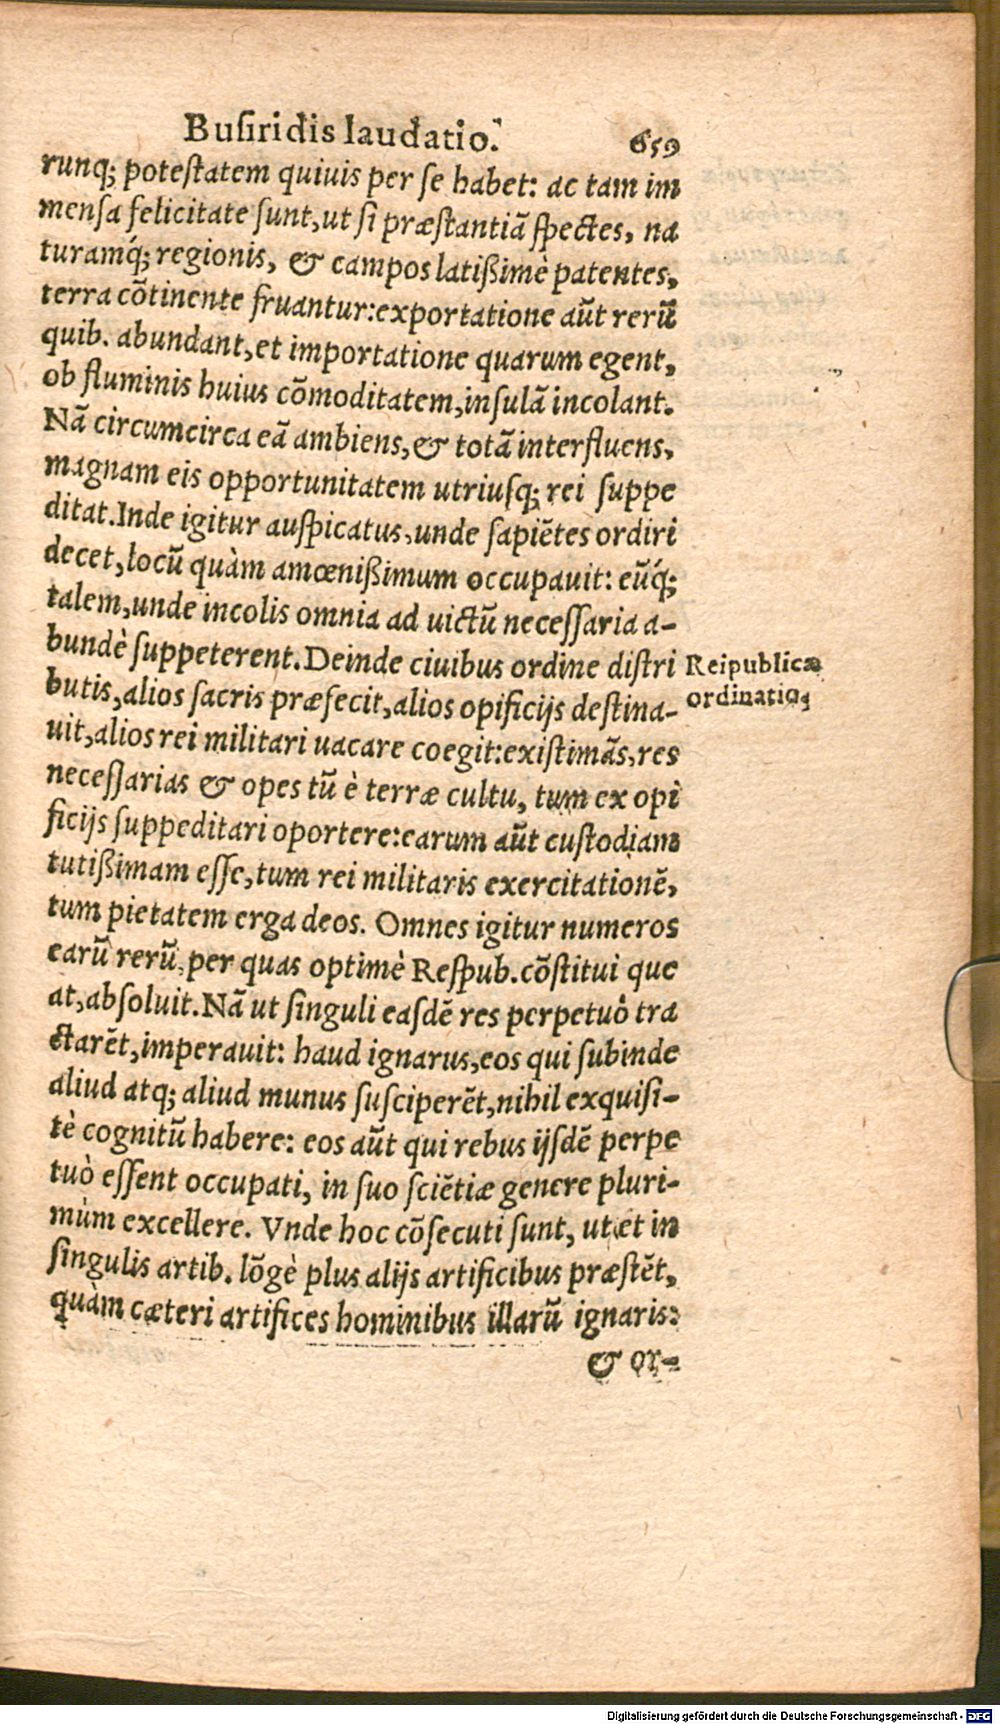 Busiridis laudatio. 659
runq; potestatem quiuis per se habet: ac tam im
mensa felicitate sunt, ut si præstantiã spectes, na
turamq́; regionis, & campos latißimè patentes,
terra cõtinente fruantur: exportatione aũt rerũ
quib. abundant, et importatione quarum egent,
ob fluminis huius cõmoditatem, insulã incolant.
Nã circumcirca eã ambiens, & totã interfluens,
magnam eis opportunitatem utriusq; rei suppe
ditat. Inde igitur auspicatus, unde sapiẽtes ordiri
decet, locũ quàm amœnißimum occupauit: eũq́;
talem, unde incolis omnia ad uictũ necessaria a-
bundè suppeterent. Deinde ciuibus ordine distri
butis, alios sacris præfecit, alios opificijs destina-
uit, alios rei militari uacare coegit: existimãs, res
necessarias & opes tũ è terræ cultu, tum ex opi
ficijs suppeditari oportere: earum aũt custodiam
tutißimam esse, tum rei militaris exercitationẽ,
tum pietatem erga deos. Omnes igitur numeros
earũ rerũ, per quas optimè Respub. cõstitui que
at, absoluit. Nã ut singuli easdẽ res perpetuò tra
ctarẽt, imperauit: haud ignarus, eos qui subinde
aliud atq; aliud munus susciperẽt, nihil exquisi-
tè cognitũ habere: eos aũt qui rebus ijsdẽ perpe
tuò essent occupati, in suo sciẽtiæ genere pluri-
mùm excellere. Vnde hoc cõsecuti sunt, ut et in
singulis artib. lõgè plus alijs artificibus præstẽt,
quàm cæteri artifices hominibus illarũ ignaris:
& or-
Reipublicæ
ordinatio.
Digitalisierung gefördert durch die Deutsche Forschungsgemeinschaft - DFG